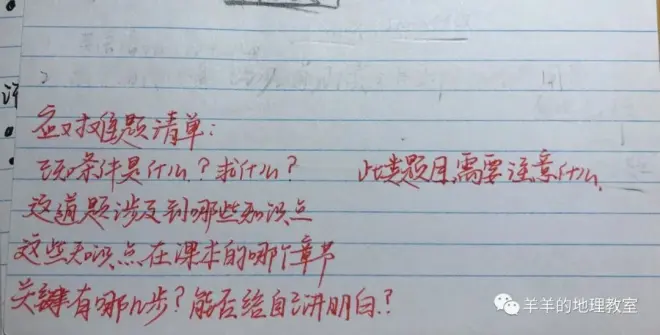 应对难题清单：
已知条件是什么？求什么？ 此类题目需要注意什么
这道题涉及到哪些知识点
这些知识点在课本的哪个章节
关键有哪几步？能否给自己讲明白？
羊羊的地理教室